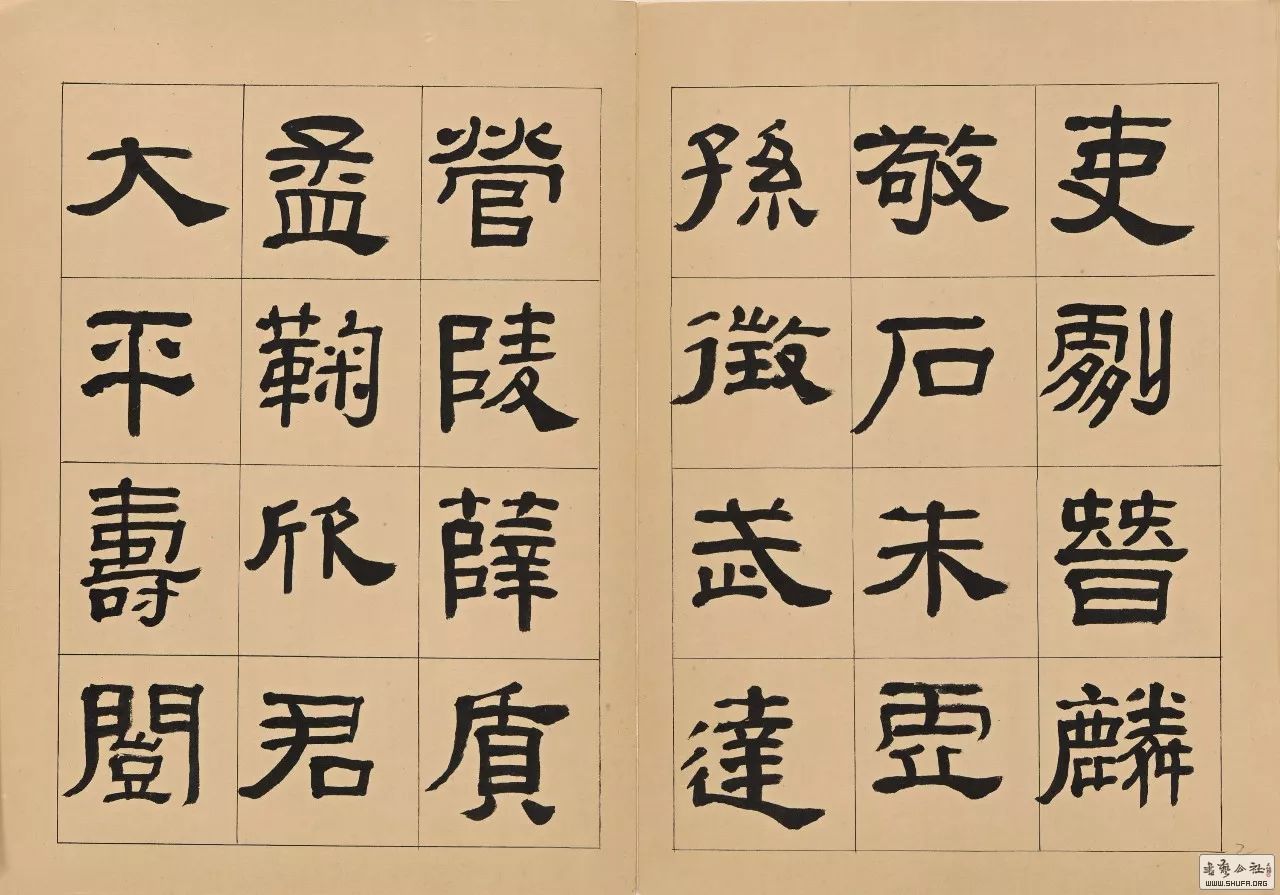 吏劇晉麟
敬石朱虛
孫徵武達
營陵薛貭
孟鞠欣君
大平壽闓
書藝公社
WWW.SHUFA.ORG